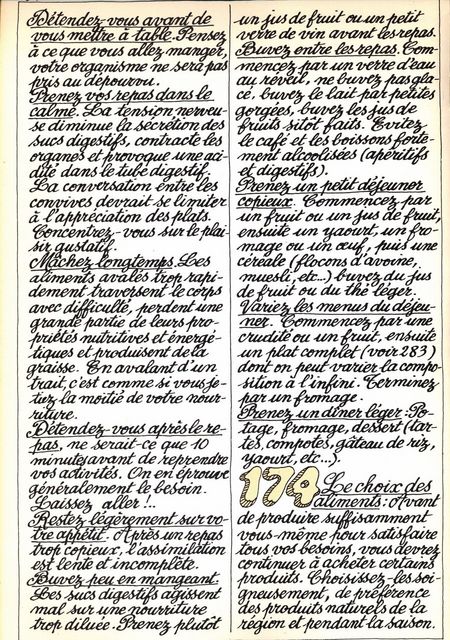 Détendez-vous avant de
vous mettre à table. Pensez
à ce que vous allez manger,
votre organisme ne sera pas
pris au dépourvu.
Prenez vos repas dans le
calme. La tension nerveu-
se diminue la sécrétion des
sucs digestifs, contracte les
organes et provoque une aci-
dité dans le tube digestif.
La conversation entre les
convives devrait se limiter
à l'appréciation des plats.
Concentrez-vous sur le plai-
sir gustatif.
Mâchez longtemps. Les
aliments avalés trop rapi-
dement traversent le corps
avec difficulté, perdent une
grande partie de leurs pro-
priétés nutritives et énergé-
tiques et produisent de la
graisse. En avalant d'un
trait, c'est comme si vous je-
tiez la moitié de votre nour-
riture.
Détendez-vous après le re-
pas, ne serait-ce que 10
minutes avant de reprendre
vos activités. On en éprouve
généralement le besoin.
Laissez aller !..
Restez légèrement sur vo-
tre appétit. Après un repas
trop copieux, l'assimilation
est lente et incomplète.
Buvez peu en mangeant.
Les sucs digestifs agissent
mal sur une nourriture
trop diluée. Prenez plutôt
un jus de fruit ou un petit
verre de vin avant les repas.
Buvez entre les repas. Com-
mencez par un verre d'eau
au réveil, ne buvez pas gla-
cé, buvez le lait par petites
gorgées, buvez les jus de
fruits sitôt faits. Evitez
le café et les boissons forte-
ment alcoolisées (apéritifs
et digestifs).
Prenez un petit déjeuner
copieux. Commencez par
un fruit ou un jus de fruit,
ensuite un yaourt, un fro-
mage ou un œuf, puis une
céréale (flocons d'avoine,
muesli, etc..) buvez du jus
de fruit ou du thé léger.
Variez les menus du déjeu-
ner. Commencez par une
crudité ou un fruit, ensuite
un plat complet (voir 283)
dont on peut varier la compo-
sition à l'infini. Terminez
par un fromage.
Prenez un dîner léger: Po-
tage, fromage, dessert (tar-
tes, compotes, gâteau de riz,
yaourt, etc...).
174 Le choix des
aliments: Avant
de produire suffisamment
vous-même pour satisfaire
tous vos besoins, vous devrez
continuer à acheter certains
produits. Choisissez-les soi-
gneusement, de préférence
des produits naturels de la
région et pendant la saison.